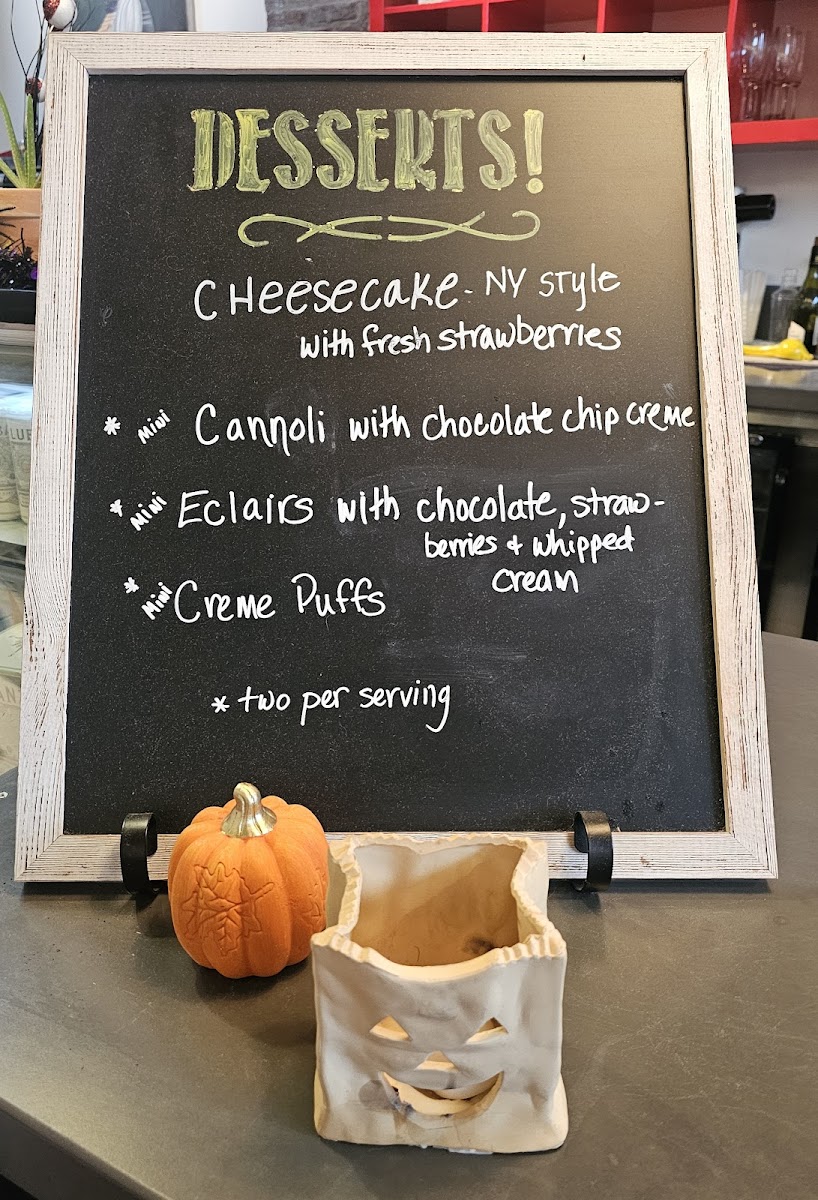 DESSERTS!
CHeesecake - NY style
with fresh strawberries
* Mini Cannoli with chocolate chip creme
* Mini Eclairs with chocolate, straw-
berries & whipped
crean
* Mini Creme Puffs
* two per serving